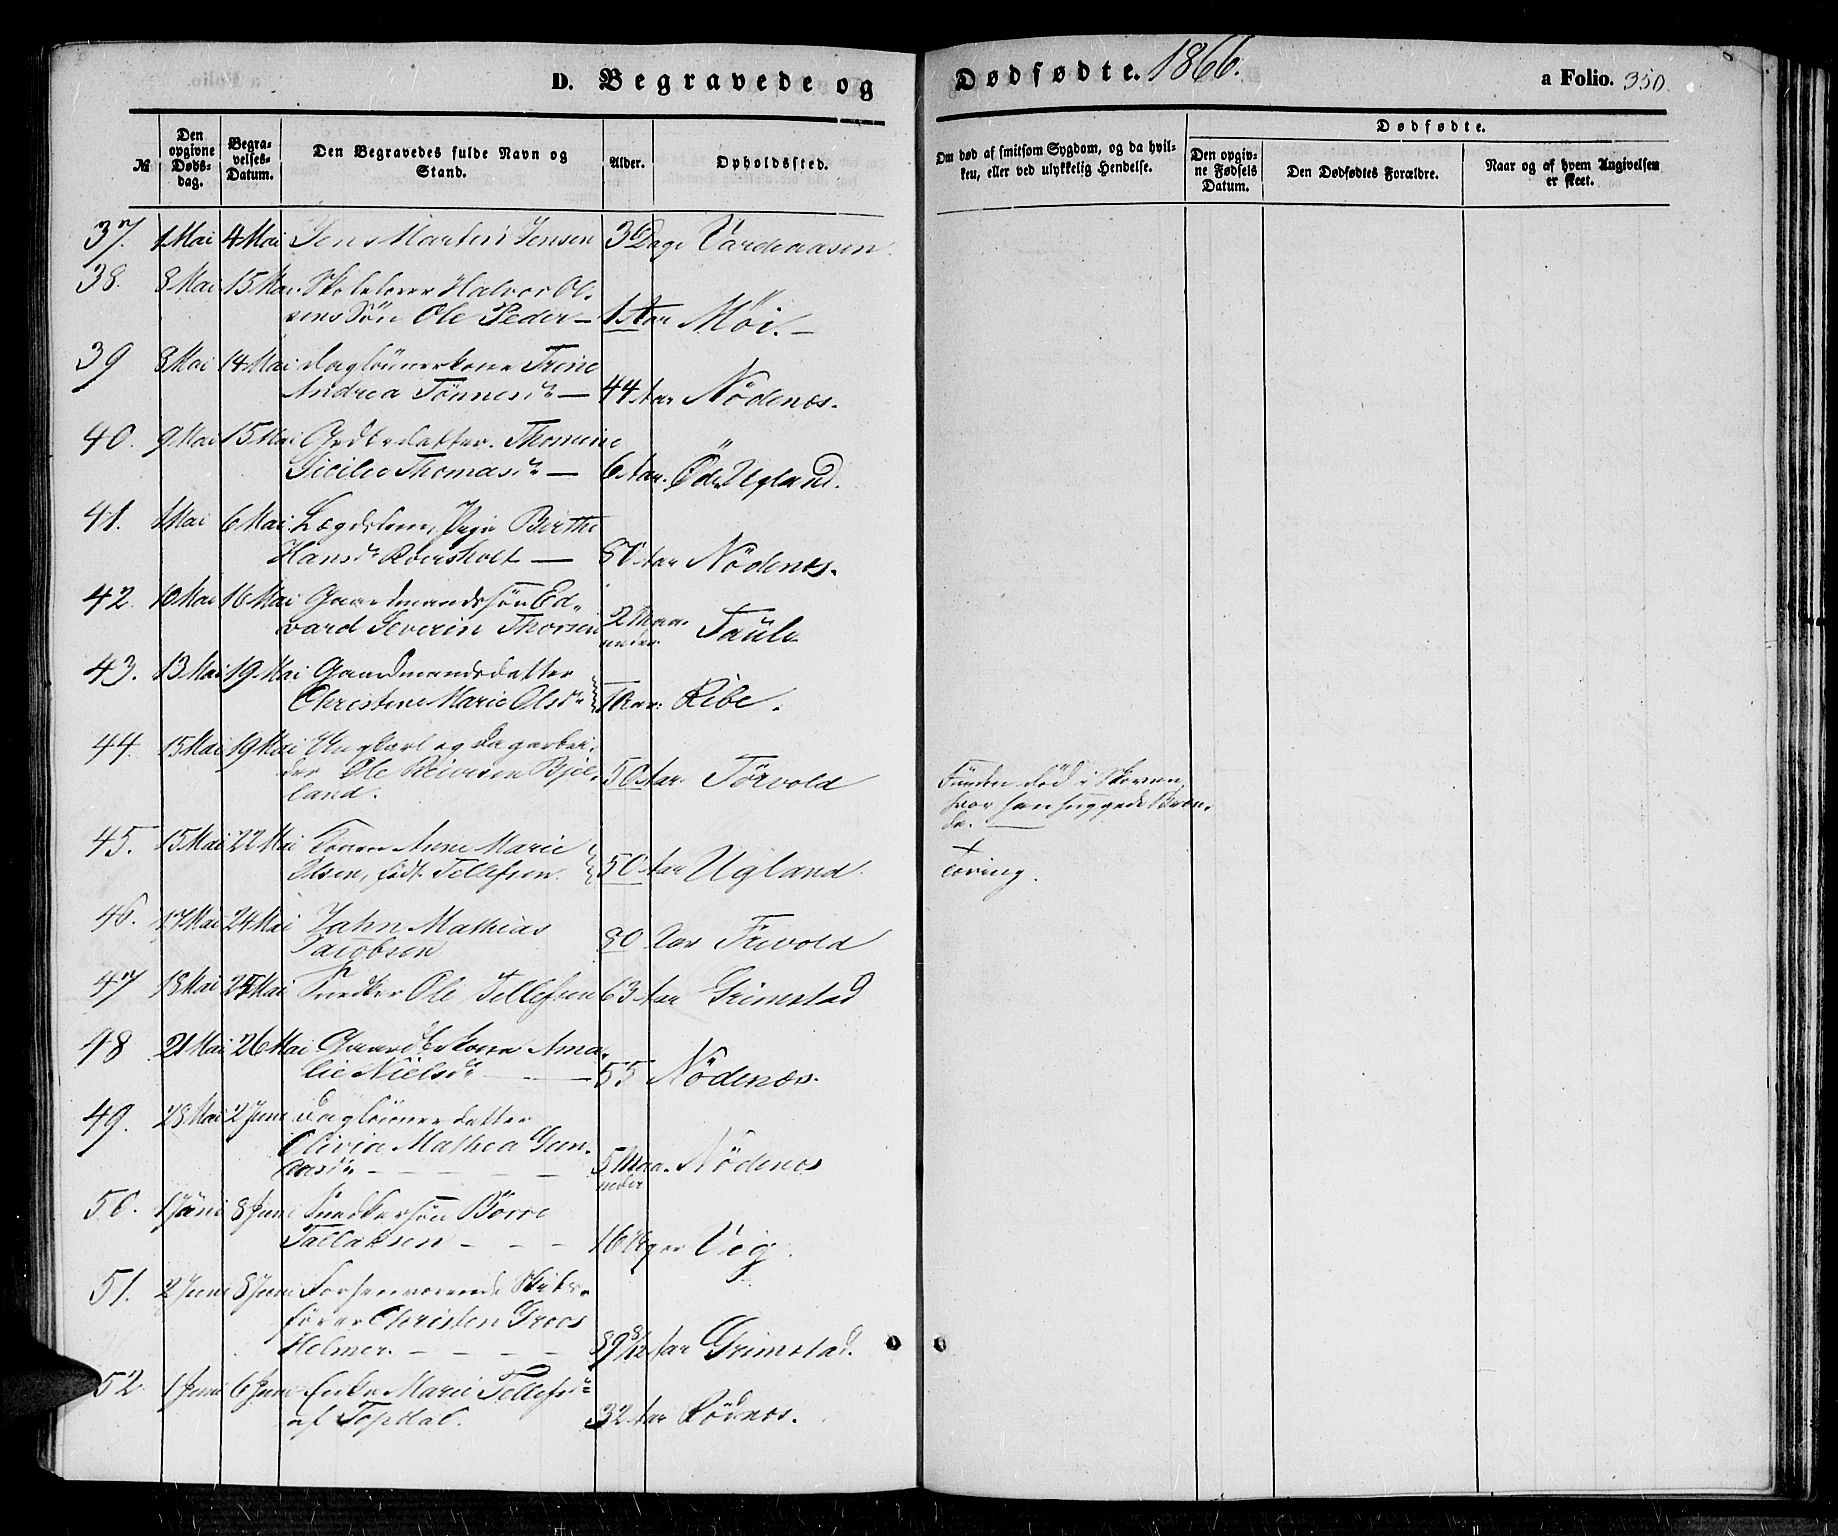 D. Begravede og Dødfødte. 1866.
a Folio. 350.
№
Den opgivne Døds-dag.
Begra-velses-Datum.
Den Begravedes fulde Navn og Stand.
Alder.
Opholdssted.
Om død af smitsom Sygdom, og da hvil-ken, eller ved ulykkelig Hendelse.
Dødfødte.
Den opgiv-ne Fødsels Datum.
Den Dødfødtes Forældre.
Naar og af hvem Angivelsen er skeet.
37. 1 Mai 4 Mai Jens Martin Jensen 3 Dage Vardeaasen
38. 8 Mai 15 Mai Skolelærer Halvor Ol-
sens Søn Ole Peder — 1 Aar Møi. —
39 8 Mai 14 Mai Daglönnerkone Trine
Andrea Tönnesdr — 44 Aar Nödenæs.
40. 9 Mai 15 Mai Grdbr datter. Thomine
Sicilie Thomasdr — 6 Aar. Öde Ugland.
41. 1 Mai 6 Mai Lægdslem, Pige Birthe
Hansdr Roersholt — Aar Nödenæs.
42. 10 Mai 16 Mai Gaardmandssön Ed-
vard Severin Thorsen 2 Maa-
neder Faule
43. 13 Mai 19 Mai Gaardmandsdatter
Christine Marie Olsdr 1 Aar. Ribe.
44. 15 Mai 19 Mai Ungkarl og Dagarbei-
der Ole Reiersen Bjel-
land. 50 Aar Törvold Funden död i Skoven
hvor han huggede Bræn-
de. —
45. 15 Mai 22 Mai Konen Anne Marie
Olsen, född Tellefsen. 50 Aar Ugland. Tæring.
46. 17 Mai 24 Mai Jahn Mathias
Jacobsen 80 Aar Frivold
47 18 Mai 25 Mai Snedker Ole Tellefsen 63 Aar Grimstad
48 21 Mai 26 Mai Gaardbr kone Ama-
lie Nielsdr — 55 Nödenæs.
49. 28 Mai 2 Juni Daglönnerdatter
Olivia Mathea Gun-
5 Maa-
neder Nödenæs
50. 1 Juni 8 Juni Snedkersön Börre
Tallaksen - - - 16 Uger Vig.
51. 2 Juni 8 Juni Forhenværende Skibs-
fører Christen Groos
Helmer. - - - - 8/12 Aar Grimstad.
52. 1 Juni 6 Juni Enke Marie Tellefsdr
af Topdal. 32 Aar Rödnæs.